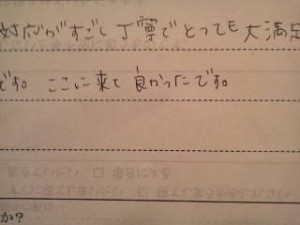 対応がすごく丁寧でとっても大満足
です。ここに来て良かったです。
か?